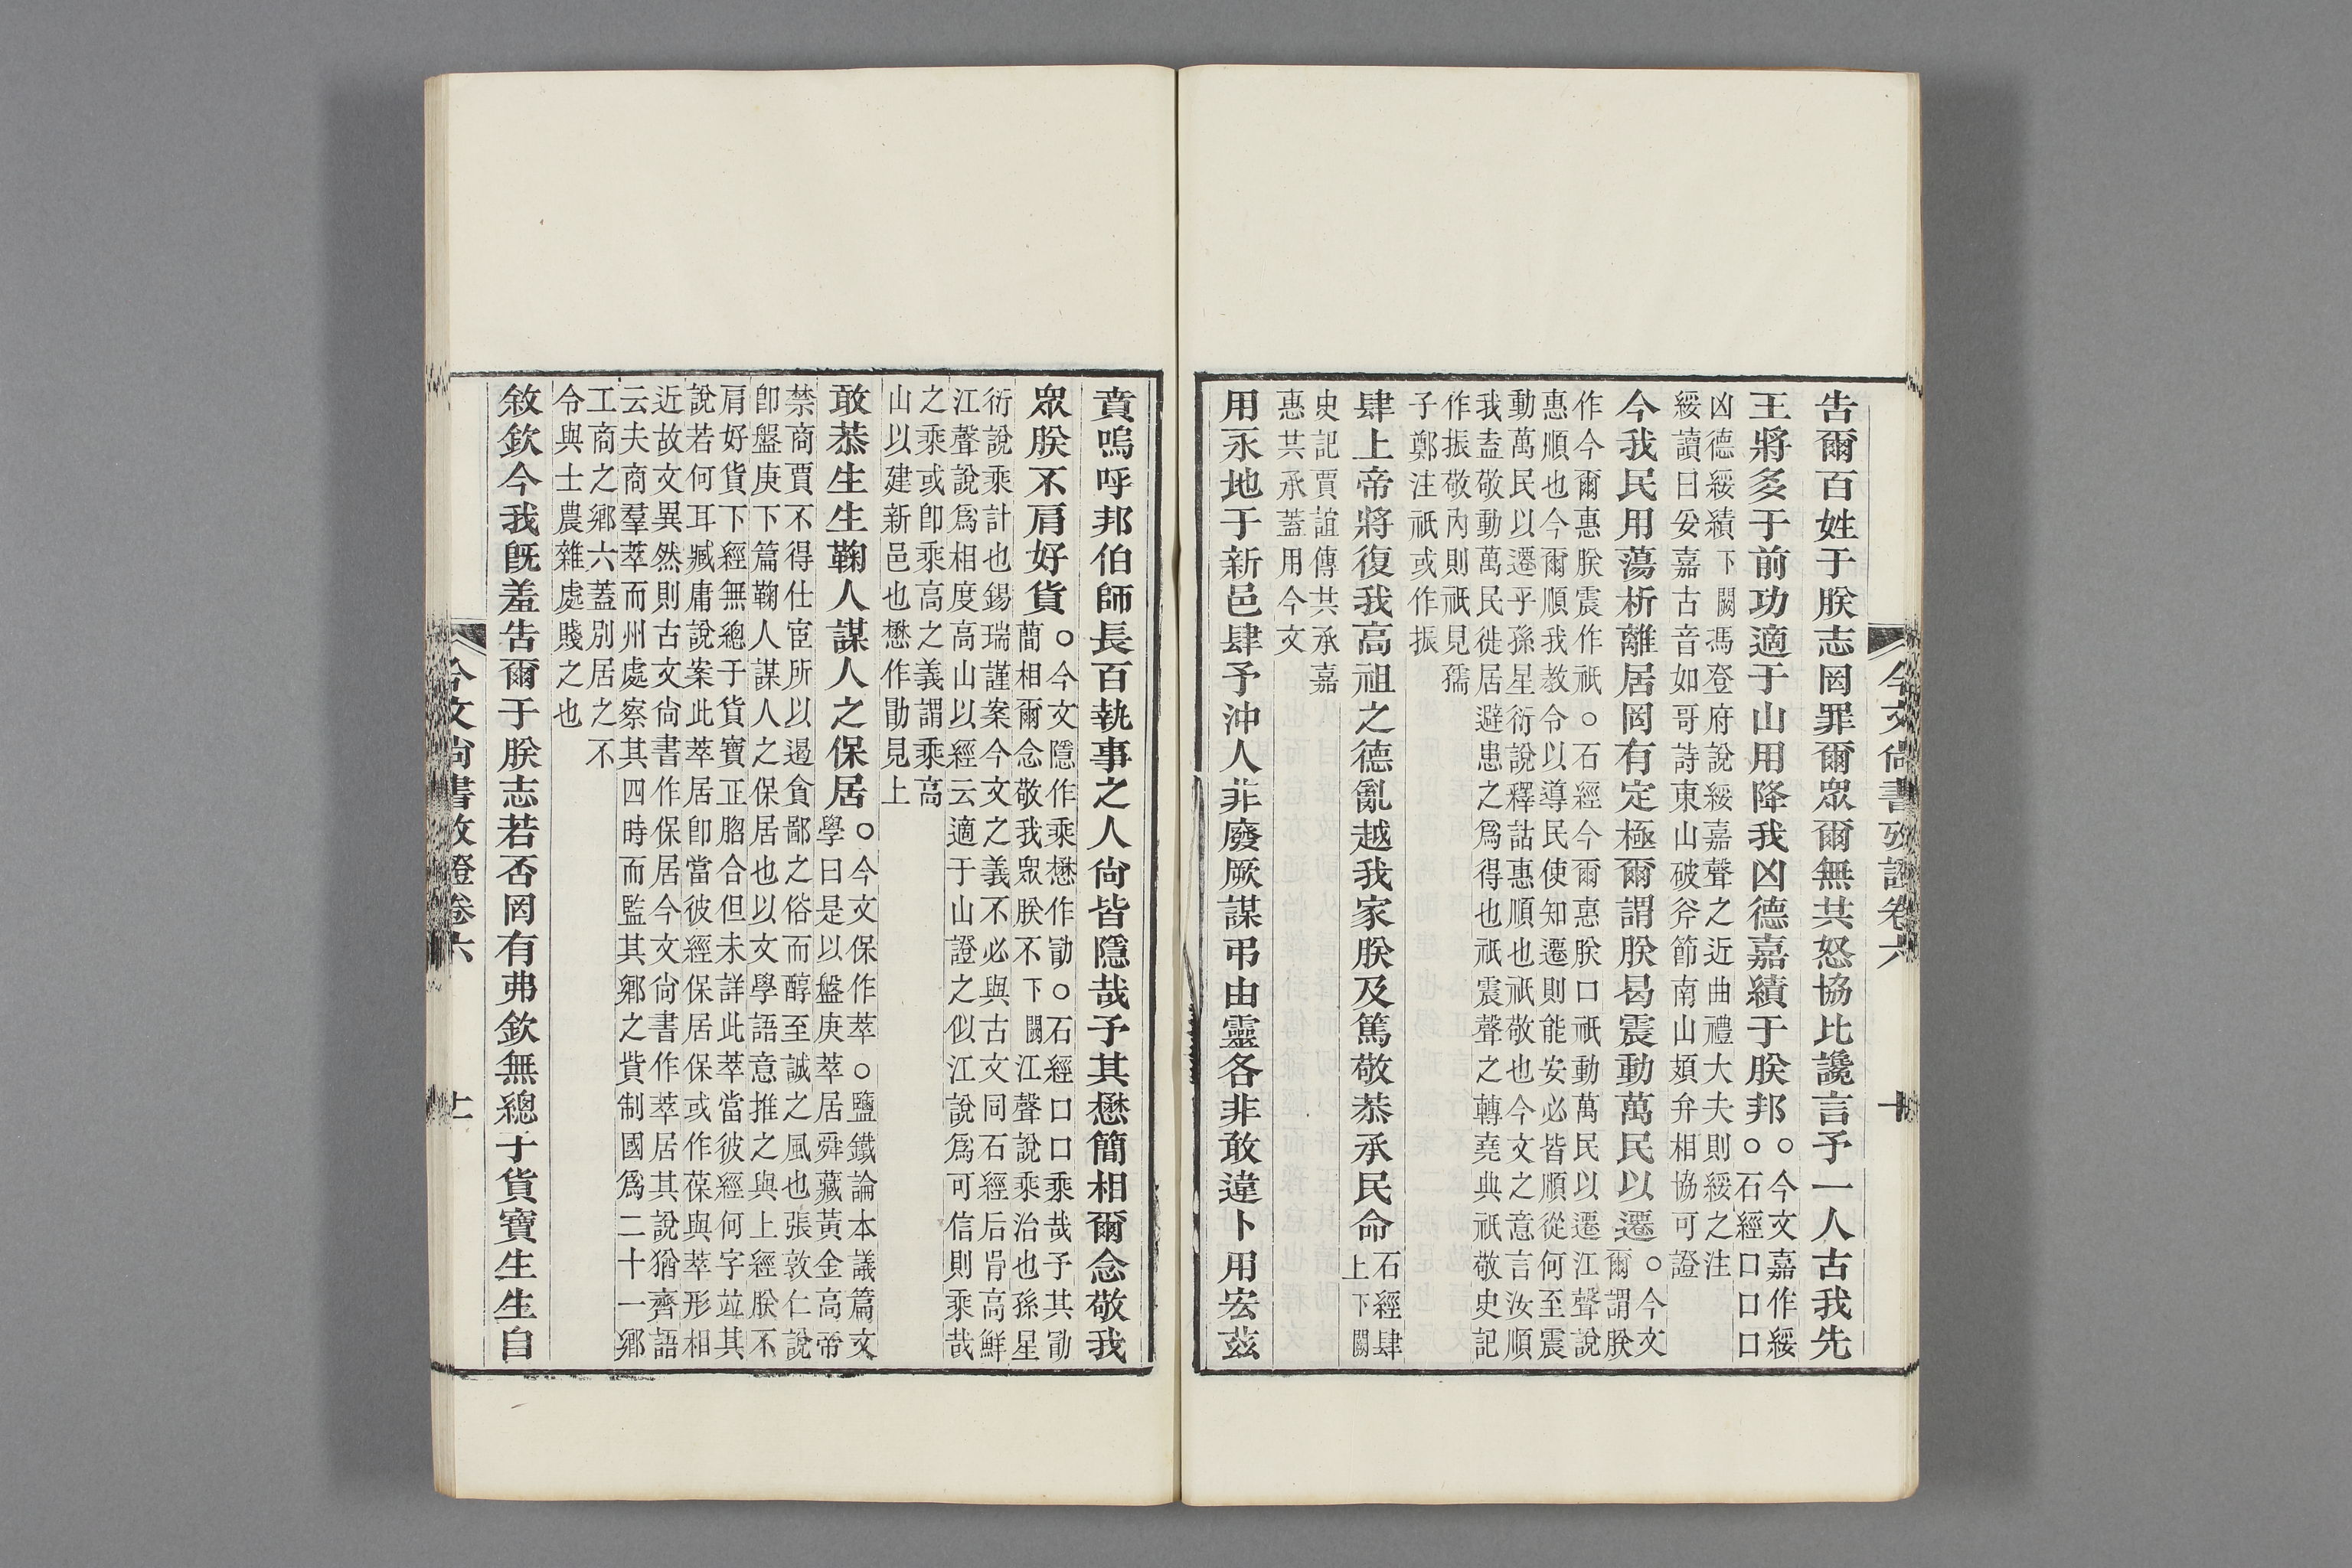 今文尚書攷證卷六
十
告爾百姓于朕志罔罪爾眾爾無共怒協比讒言予一人古我先
王將多于前功適于山用降我凶德嘉績于朕邦○今文嘉作綏
○石經口口口
凶德綏績下闕馮登府說綏嘉聲之近曲禮大夫則綏之注
綏讀曰妥嘉古音如哥詩東山破斧節南山頍弁相協可證
今我民用蕩析離居罔有定極爾謂朕曷震動萬民以遷○今文
爾謂朕
作今爾惠朕震作祇○石經今爾惠朕口祇動萬民以遷江聲說
惠順也今爾順我教令以導民使知遷則能安必皆順從何至震
動萬民以遷乎孫星衍說釋詁惠順也祇敬也今文之意言汝順
我盍敬動萬民徙居避患之爲得也祇震聲之轉堯典祇敬史記
作振敬內則祇見孺
子鄭注祇或作振
肆上帝將復我高祖之德亂越我家朕及篤敬恭承民命石經肆
上下闕
史記賈誼傳共承嘉
惠共承蓋用今文
用永地于新邑肆予沖人非廢厥謀弔由靈各非敢違卜用宏茲
賁嗚呼邦伯師長百執事之人尚皆隱哉予其懋簡相爾念敬我
眾朕不肩好貨○今文隱作乘懋作勖○石經口口乘哉予其勖
簡相爾念敬我眾朕不下闕江聲說乘治也孫星
衍說乘計也錫瑞謹案今文之義不必與古文同石經后肯高鮮
江聲說爲相度高山以經云適于山證之似江說爲可信則乘哉
之乘或卽乘高之義謂乘高
山以建新邑也懋作勖見上
敢恭生生鞠人謀人之保居○今文保作萃○鹽鐵論本議篇文
學曰是以盤庚萃居舜藏黃金高帝
禁商賈不得仕宦所以遏貪鄙之俗而醇至誠之風也張敦仁說
卽盤庚下篇鞠人謀人之保居也以文學語意推之與上經朕不
肩好貨下經無總于貨寶正脗合但未詳此萃當彼經何字竝其
說若何耳臧庸說案此萃居卽當彼經保居保或作葆與萃形相
近故文異然則古文尚書作保居今文尚書作萃居其說猶齊語
云夫商羣萃而州處察其四時而監其鄉之貲制國爲二十一鄉
工商之鄉六蓋別居之不
令與士農雜處賤之也
敘欽今我旣羞告爾于朕志若否罔有弗欽無總于貨寶生生自
今文尚書攷證卷六